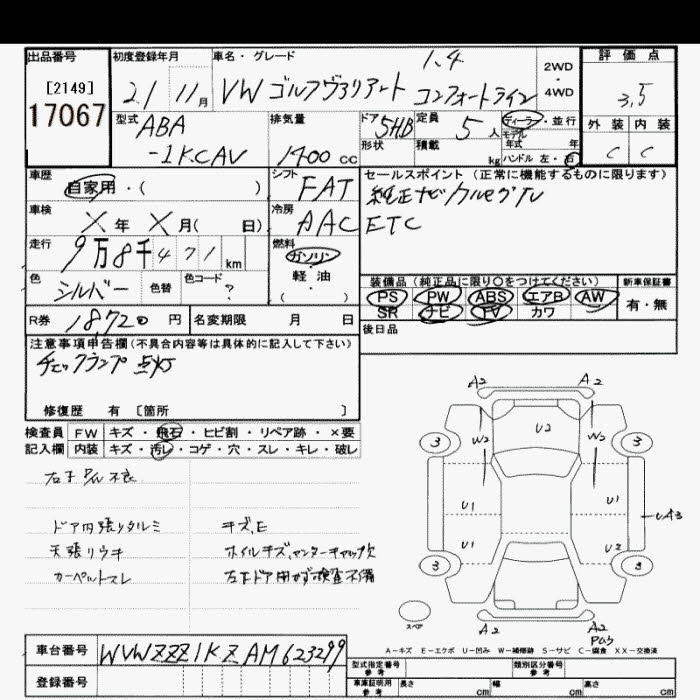 出品番号
[2149]
17067
初度登録年月
21 11月
車名・グレード
VW ゴルフヴァリアート 1.4
コンフォートライン
2WD
・
4WD
評価点
3.5
外装 内装
C C
型式
ABA
-1KCAV
排気量
1400 cc
ドア 5HB
形状
定員 5人
積載 kg
ディーラー・並行
モデル
年式 年
ハンドル 左・右
車歴
自家用・( )
シフト FAT
セールスポイント(正常に機能するものに限ります)
純正ナビ フルセグTV
ETC
車検
X年 X月( 日)
冷房 AAC
走行
9万8千471 km
燃料
ガソリン
・
軽油
( )
色 シルバー
色替
色コード ?
装備品(純正品に限り○をつけてください)
PS PW ABS エアB AW
SR ナビ TV カワ
新車保証書
有・無
R券 18,720円
名変期限 月 日
後日品
注意事項申告欄(不具合内容等は具体的に記入して下さい)
チェックランプ点灯
修復歴 有 [箇所 ]
検査員
記入欄
FW キズ・飛石・ヒビ割・リペア跡・×要
内装 キズ・汚レ・コゲ・穴・スレ・キレ・破レ
ドア内張りタルミ
天張りウキ
カーペットスレ
キズ,E
ホイルキズ,センターキャップ欠
A2 A2
U2
W2 W2
3 3
U1 U1
UA3
U1 U2
3 3
スペア
A2 A2
A-キズ E-エクボ U-凹み W-補修跡 S-サビ C-腐食 XX-交換済
車台番号 WVWZZZ1KZAM623299
登録番号
型式指定番号
参考
類別区分番号
参考
車庫証明用
参考
長さ cm
幅 cm
高さ cm